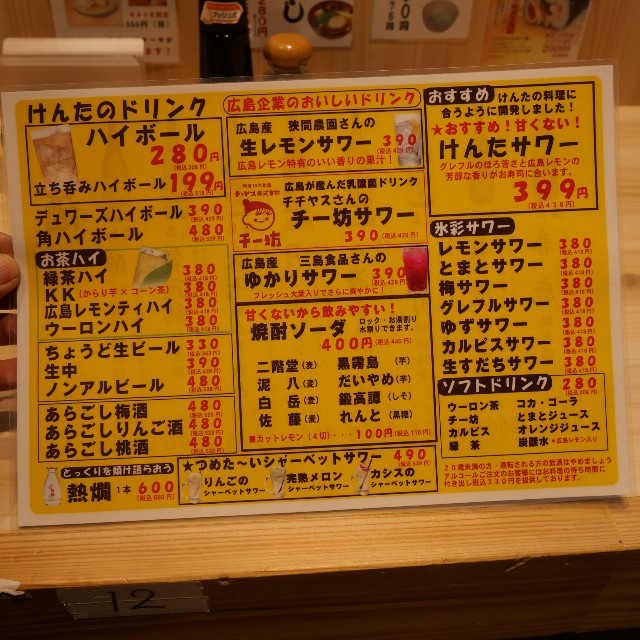 けんたのドリンク
ハイボール
280円
(税込308円)
立ち呑みハイボール 199円
(税込218円)
デュワーズハイボール 390 (税込429円)
角ハイボール 480 (税込528円)
お茶ハイ
緑茶ハイ 380 (税込418円)
KK(からり芋×コーン茶) 380 (税込418円)
広島レモンティハイ 380 (税込418円)
ウーロンハイ 380 (税込418円)
ちょうど生ビール 330 (税込363円)
生中 390 (税込429円)
ノンアルビール 480 (税込528円)
あらごし梅酒 480 (税込528円)
あらごしりんご酒 480 (税込528円)
あらごし桃酒 480 (税込528円)
とっくりを傾け語らおう
熱燗 1本 600 (税込660円)
広島企業のおいしいドリンク
広島産 狭間農園さんの
生レモンサワー 390
(税込429円)
広島レモン特有のいい香りの果汁!
チチヤス株式会社
チー坊
広島が産んだ乳酸菌ドリンク
チチヤスさんの
チー坊サワー
390 (税込429円)
広島産 三島食品さんの
ゆかりサワー 390
(税込429円)
フレッシュ大葉入りでさらに爽やかに!
甘くないから飲みやすい!
焼酎ソーダ
ロック・お湯割り
水割りできます。
400円 (税込440円)
二階堂(麦) 黒霧島(芋)
泥八(麦) だいやめ(芋)
白岳(米) 鍛高譚(しそ)
佐藤(麦) れんと(黒糖)
■カットレモン(4切)・・・100円(税込110円)
★つめた〜いシャーベットサワー 490 (税込539円)
りんごの
シャーベットサワー
完熟メロン
シャーベットサワー
カシスの
シャーベットサワー
おすすめ けんたの料理に
合うように開発しました!
★おすすめ!甘くない!
けんたサワー
グレフルのほろ苦さと広島レモンの
芳醇な香りがお寿司に合います。
399円
(税込438円)
氷彩サワー
レモンサワー 380 (税込418円)
とまとサワー 380 (税込418円)
梅サワー 380 (税込418円)
グレフルサワー 380 (税込418円)
ゆずサワー 380 (税込418円)
カルピスサワー 380 (税込418円)
生すだちサワー 380 (税込418円)
ソフトドリンク 280 (税込308円)
ウーロン茶 コカ・コーラ
チー坊 とまとジュース
カルピス オレンジジュース
緑茶 炭酸水 +広島レモン入り
20歳未満の方・運転される方の飲酒はやめましょう
アルコールご注文のお客様にはお料理の待ち時間に
付き出し税込330円を提供しております。
12